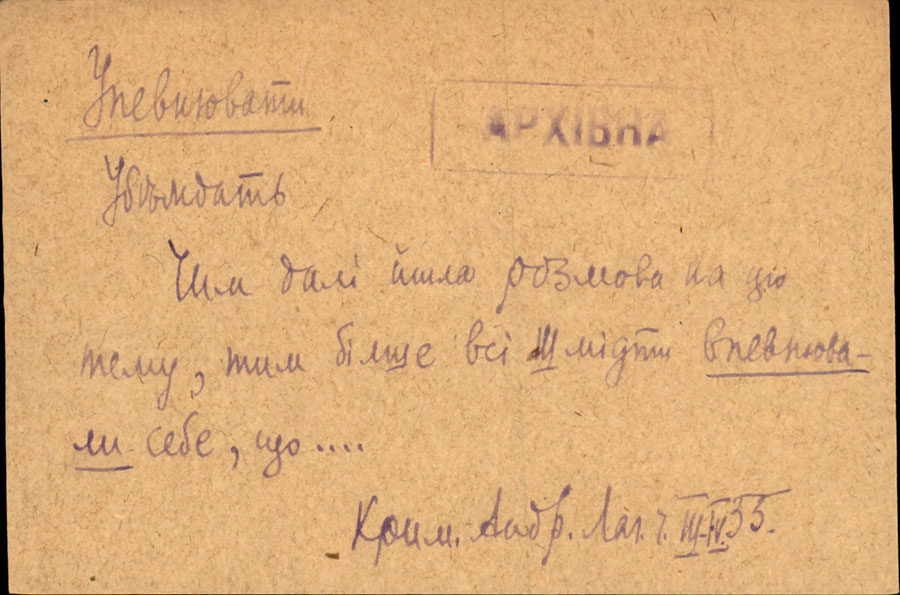 Упевнювати
АРХІВНА
Убѣждать
Чим далі йшла розмова на цю
тему, тим більше всі Шмідти впевнюва-
ли себе, що....
Крим. Андр. Лаг. ч. III-IV. 55.